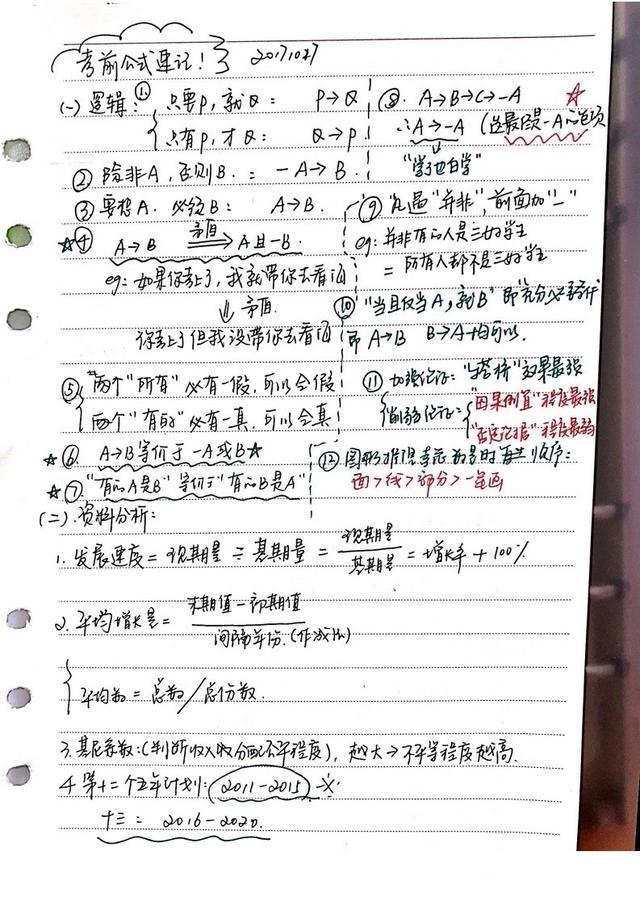 考前公式速记! 20171027
(一) 逻辑: ① 只要P, 就Q: P→Q
只有P, 才Q: Q→P
② 除非A, 否则B.: -A→B.
③ 要想A. 必须B: A→B.
☆④ A→B 矛盾 ⟹ A且-B.
eg: 如果你考上了, 我就带你去看海
↓ 矛盾
你考上了但我没带你去看海
⑤ 两个"所有"必有一假, 可以会假
两个"有的"必有一真, 可以会真
★⑥. A→B等价于 -A或B★
★⑦. "有的A是B"等价于"有的B是A"
⑧. A→B→C→-A ☆
∴A→-A (选最后是-A的选项
"学了也白学"
⑨ 凡遇"并非", 前面加"-"
eg: 并非有的人是三好学生
= 所有人都不是三好学生
⑩ "当且仅当A, 就B" 即"充分必要条件"
即 A→B B→A 均可以.
⑪ 加强论证: "搭桥"效果最强
削弱论证: "因果倒置"程度最强
"否定论据"程度最弱
⑫ 图形推理考元素数量时
面>线>部分>一笔画
(二). 资料分析:
1. 发展速度 = 现期量 ÷ 基期量 = 现期量/基期量 = 增长率 + 100%
2. 平均增长量 = 末期值-初期值/间隔年份.(作减法)
平均数 = 总数/总份数.
3. 基尼系数: (判断收入收分配不平程度), 越大→不平等程度越高.
4. 第十二个五年计划: 2011-2015
十三 = 2016-2020.